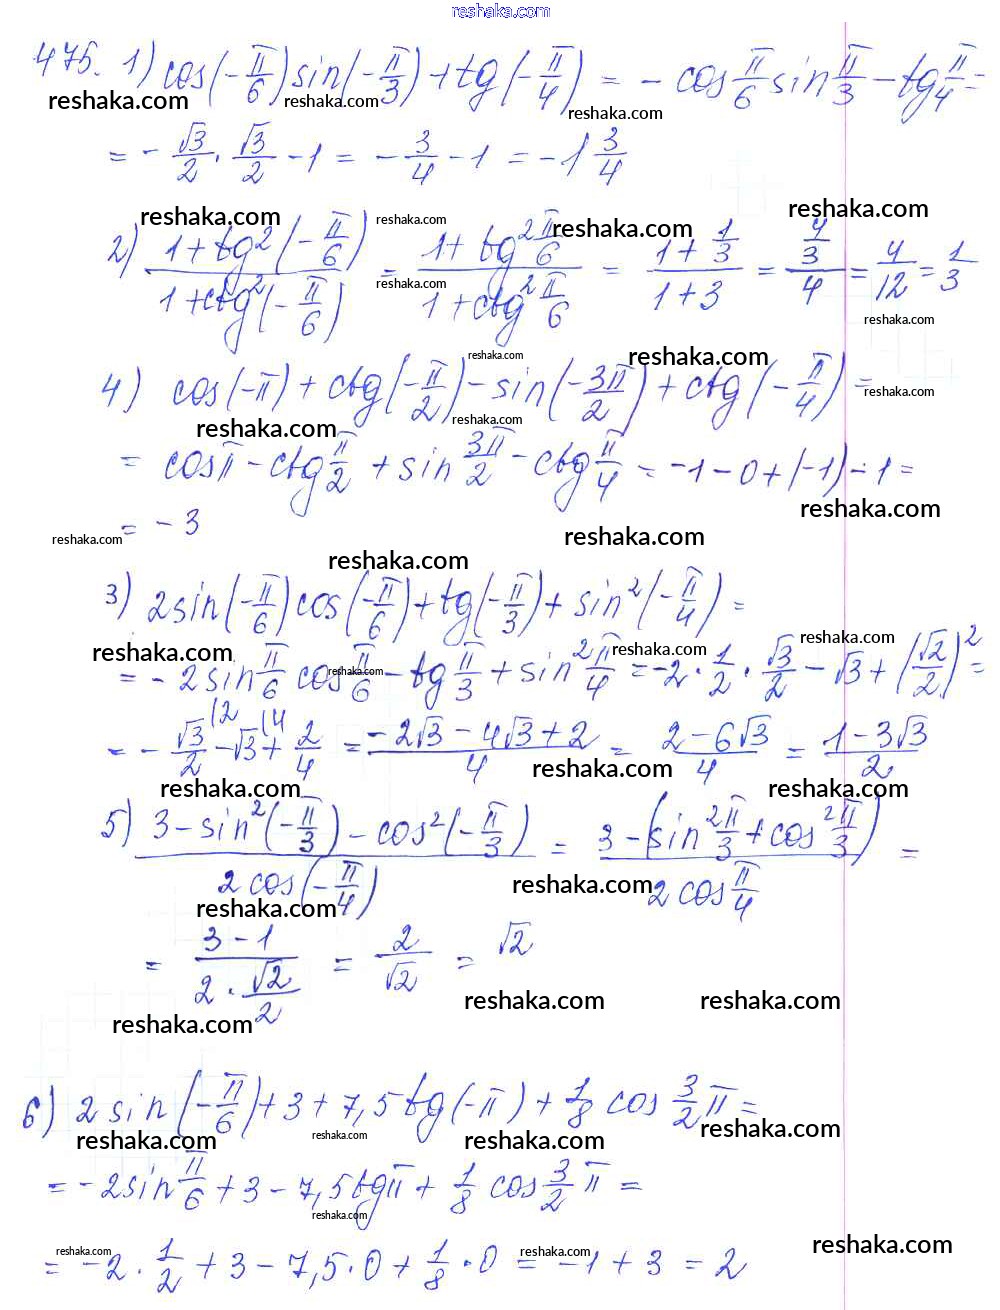 reshaka.com
475. 1) cos(-π/6) sin(-π/3) + tg(-π/4) = - cos π/6 sin π/3 - tg π/4 =
reshaka.com reshaka.com reshaka.com
= - √3/2 · √3/2 - 1 = - 3/4 - 1 = - 1 3/4
reshaka.com reshaka.com reshaka.com reshaka.com
2) (1 + tg²(-π/6))/(1 + ctg²(-π/6)) = (1 + tg² π/6)/(1 + ctg² π/6) = (1 + 1/3)/(1 + 3) = (4/3)/4 = 4/12 = 1/3
reshaka.com reshaka.com
reshaka.com reshaka.com
4) cos(-π) + ctg(-π/2) - sin(-3π/2) + ctg(-π/4) =
reshaka.com reshaka.com reshaka.com
= cos π - ctg π/2 + sin 3π/2 - ctg π/4 = -1 - 0 + (-1) - 1 =
reshaka.com
= - 3
reshaka.com reshaka.com
reshaka.com
3) 2 sin(-π/6) cos(-π/6) + tg(-π/3) + sin²(-π/4) =
reshaka.com reshaka.com reshaka.com
= - 2 sin π/6 cos π/6 - tg π/3 + sin² π/4 = -2 · 1/2 · √3/2 - √3 + (√2/2)² =
reshaka.com
= - √3/2 |2 - √3 |4 + 2/4 = (-2√3 - 4√3 + 2)/4 = (2 - 6√3)/4 = (1 - 3√3)/2
reshaka.com reshaka.com reshaka.com
5) (3 - sin²(-π/3) - cos²(-π/3))/(2 cos(-π/4)) = (3 - (sin² π/3 + cos² π/3))/(2 cos π/4) =
reshaka.com reshaka.com
= (3 - 1)/(2 · √2/2) = 2/√2 = √2
reshaka.com reshaka.com reshaka.com
6) 2 sin(-π/6) + 3 + 7,5 tg(-π) + 1/8 cos 3/2 π =
reshaka.com reshaka.com reshaka.com reshaka.com
= - 2 sin π/6 + 3 - 7,5 tg π + 1/8 cos 3/2 π =
reshaka.com
= - 2 · 1/2 + 3 - 7,5 · 0 + 1/8 · 0 = - 1 + 3 = 2
reshaka.com reshaka.com reshaka.com reshaka.com